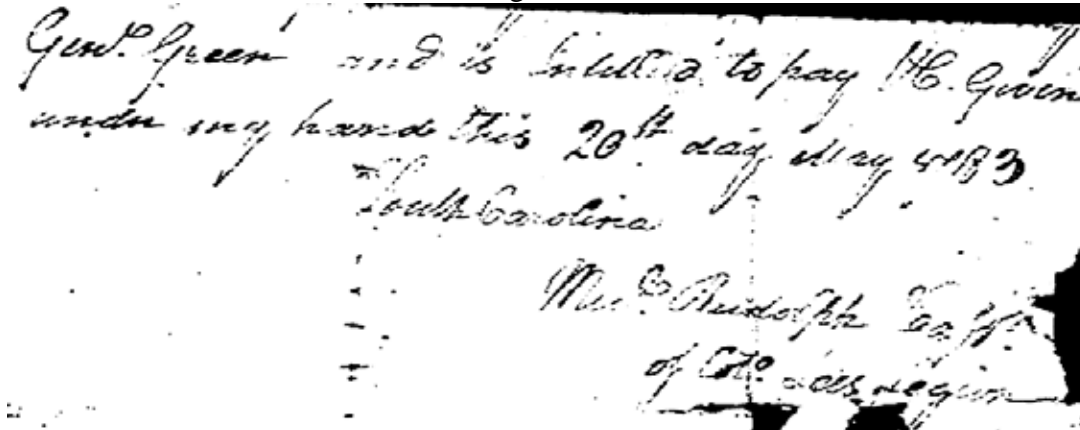 Genl. Green and is Intitled to pay &c. Given
under my hand this 20th day May 1783
South Carolina
Micl. Rudolph Capt.
of Colo. Lees Legion